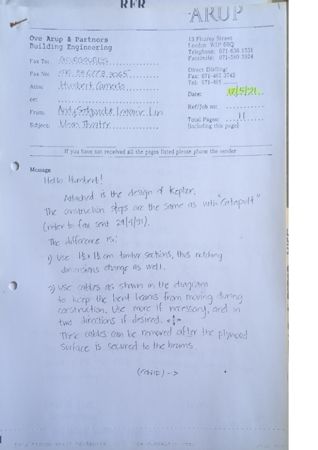 RFR
ARUP
Ove Arup & Partners
Building Engineering
13 Fitzroy Street
London W1P 6BQ
Telephone: 071-636 1531
Facsimile: 071-580 3924
Direct Dialling:
Fax: 071-465
Tel: 071-465
Fax To:
Fax No:
Attn: Humbert Camerlo
cc:
From:
Date:
Ref/Job no:
Total Pages: 11
(including this page)
Subject: Theatre
If you have not received all the pages listed please phone the sender
Message
Hello Humbert!
Attached is the design of Kepler.
The construction steps are the same as with "Catapult"
(refer to fax sent
The difference is:
1) Use timber sections, thus notching
dimensions change as well.
2) Use cables as shown in the diagram
to keep the bent beams from moving during
construction. Use more if necessary, and in
two directions if desired.
These cables can be removed after the plywood
surface is secured to the beams.